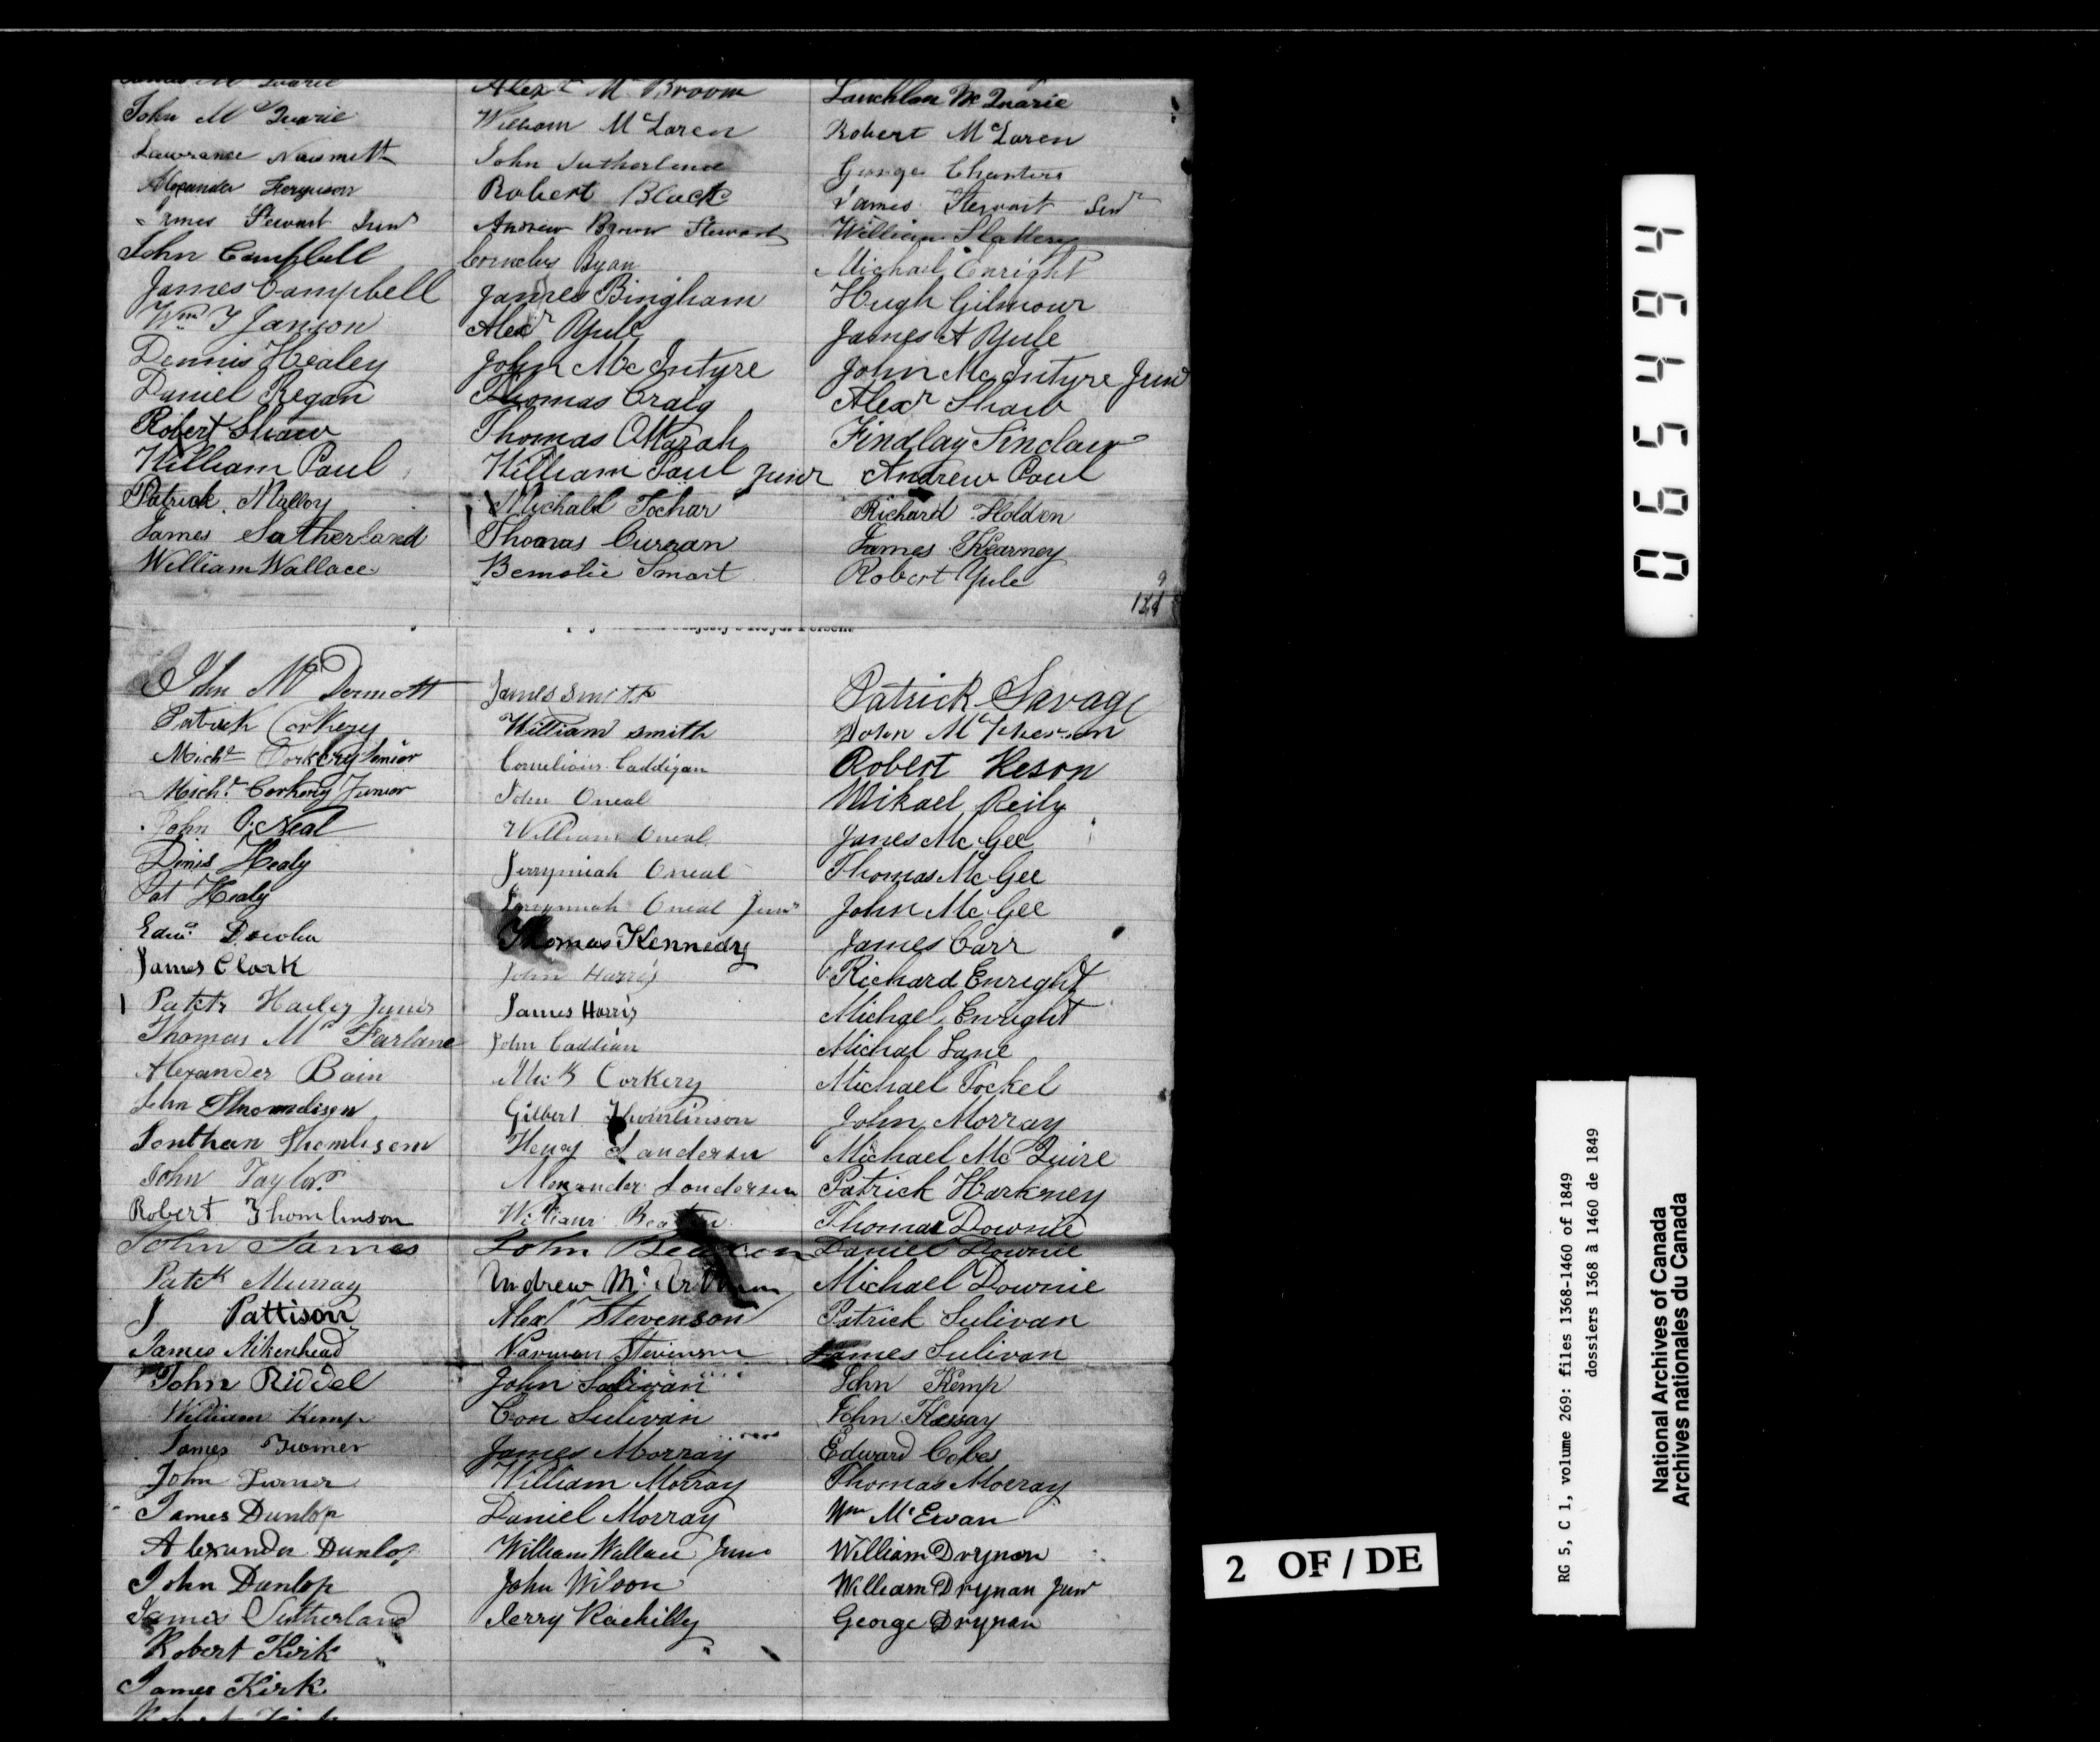 Alexr McBroom
Lauchlan McQuarie
John McQuarie
William McLaren
Robert McLaren
Lawrance Naismith
John Sutherland
George Chanters
Alexander Ferguson
Robert Black
James Stewart Senr
James Stewart Junr
Andrew Brown Stewart
William Slattery
John Campbell
Cornelius Ryan
Michael Enright
James Campbell
James Bingham
Hugh Gilmour
Wm T Janson
Alexr Yule
James A Yule
Dennis Healey
John McIntyre
John McIntyre Junr
Daniel Regan
Thomas Craig
Alexr Shaw
Robert Shaw
Thomas OMarah
Findlay Sinclair
William Paul
William Paul Junr
Andrew Paul
Patrick Malloy
Michael Tochar
Richard Holden
James Sutherland
Thomas Curran
James Kearney
William Wallace
Smart
Robert Yule
John McDermott
James Smith
Patrick Savage
Patrick Corkery
William Smith
John McPherson
Michl Corkery Senior
Cornelious Caddigan
Robert Keson
Michl Corkery Junior
John Oneal
Mikael Reily
John O'Neal
William Oneal
James McGee
Dinis Healy
Jerrymiah Oneal
Thomas McGee
Pat Healy
Jerrymiah Oneal Junr
John McGee
Edwd
Thomas Kennedy
James Carr
James Clark
John Harris
Richard Enright
Patk Hailey Junr
James Harris
Michael Enright
Thomas McFarlane
John Caddian
Michal Lane
Alexander Bain
Mick Corkery
Michael Tockel
John Thomlison
Gilbert Thomlinson
John Morray
Jonthan Thomlisom
Henry Landersen
Michael McQuire
John Taylor
Alexander Landersen
Patrick Harkney
Robert Thomlinson
William Beaton
Thomas Downie
John James
John Beaton
Daniel Downie
Patck Murray
Andrew McArthur
Michael Downie
J Pattison
Alexr Stevenson
Patrick Sulivan
James Aikenhead
Norman Stevenson
James Sulivan
John Riddel
John Sulivan
John Kemp
William Kemp
Con Sulivan
John
James Turner
James Morray
Edward Cokes
John Turner
William Morray
Thomas Morray
James Dunlop
Daniel Morray
Wm McEwan
Alexander Dunlop
William Wallace Junr
William Drynan
John Dunlop
John Wilson
William Drynan Junr
James Sutherland
Jerry Kachilly
George Drynan
Robert Kirk
James Kirk
065494
2 OF / DE
RG 5, C 1, volume 269: files 1368-1460 of 1849
dossiers 1368 à 1460 de 1849
National Archives of Canada
Archives nationales du Canada